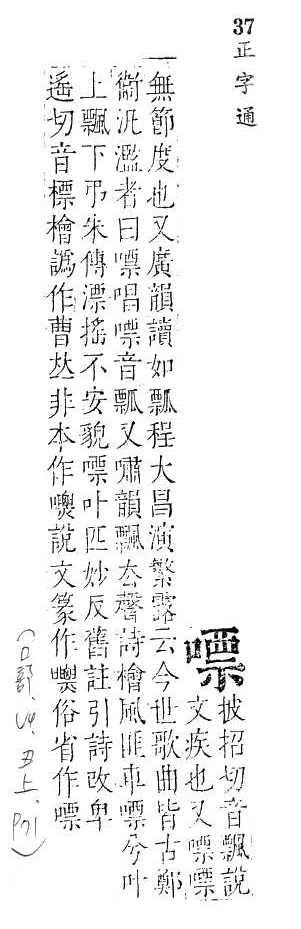 37
正字通
嘌
披招切音飄說
文疾也又嘌嘌
無節度也又廣韻讀如瓢程大昌演繁露云今世歌曲皆古鄭
衞汎濫者曰嘌唱嘌音瓢又嘯韻飄厺聲詩檜風匪車嘌兮叶
上飄下弔朱傳漂搖不安貌嘌叶匹妙反舊註引詩改卑
遙切音標檜譌作曹𠀤非本作說文篆作俗省作嘌
(口部、丑上、P71)